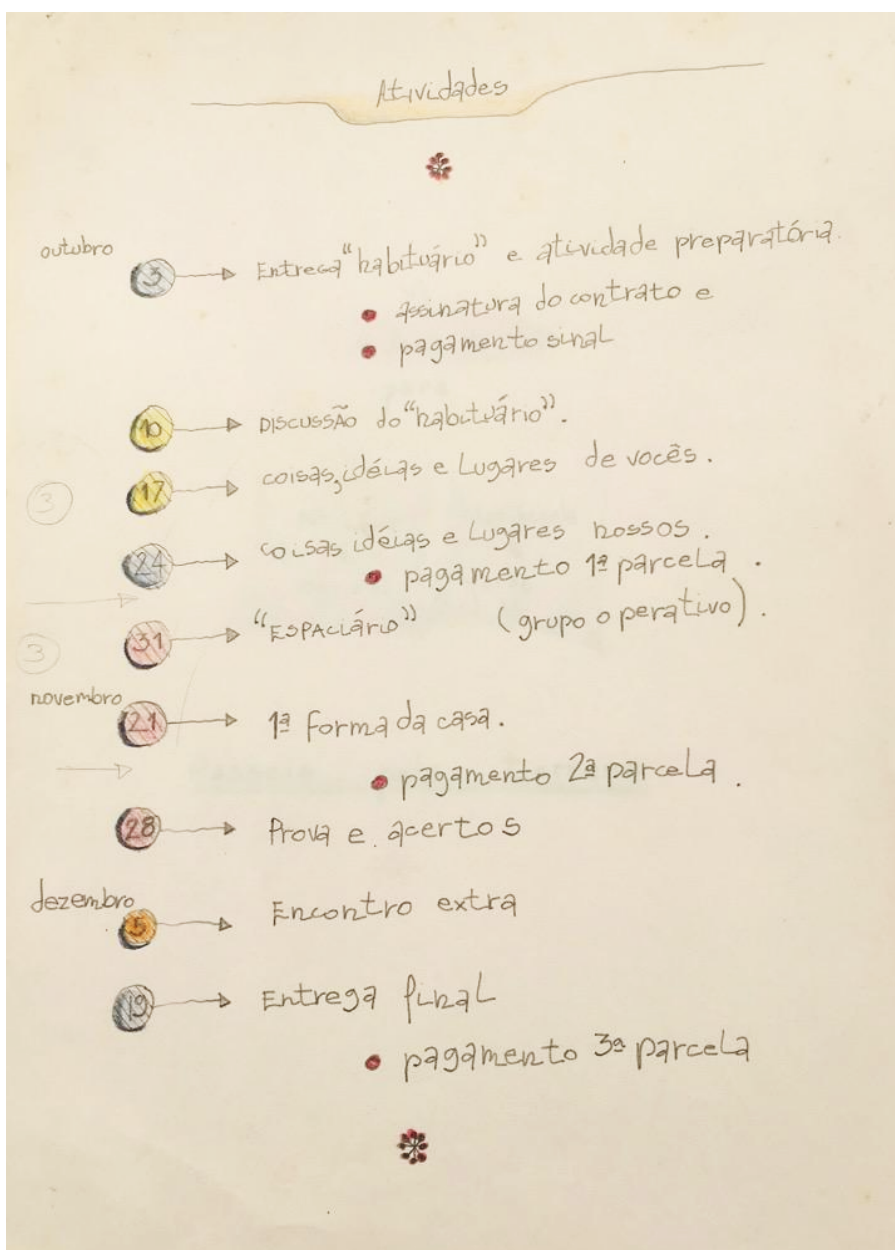 Atividades
outubro
3 Entrega "habituário" e atividade preparatória.
assinatura do contrato e
pagamento sinal
10 Discussão do "habituário".
17 coisas, idéias e Lugares de vocês.
3
24 coisas idéias e Lugares nossos.
pagamento 1ª parcela.
31 "ESPACIÁRIO" (grupo operativo).
3
novembro
21 1ª forma da casa.
pagamento 2ª parcela.
28 Prova e acertos
dezembro
5 Encontro extra
19 Entrega final
pagamento 3ª parcela